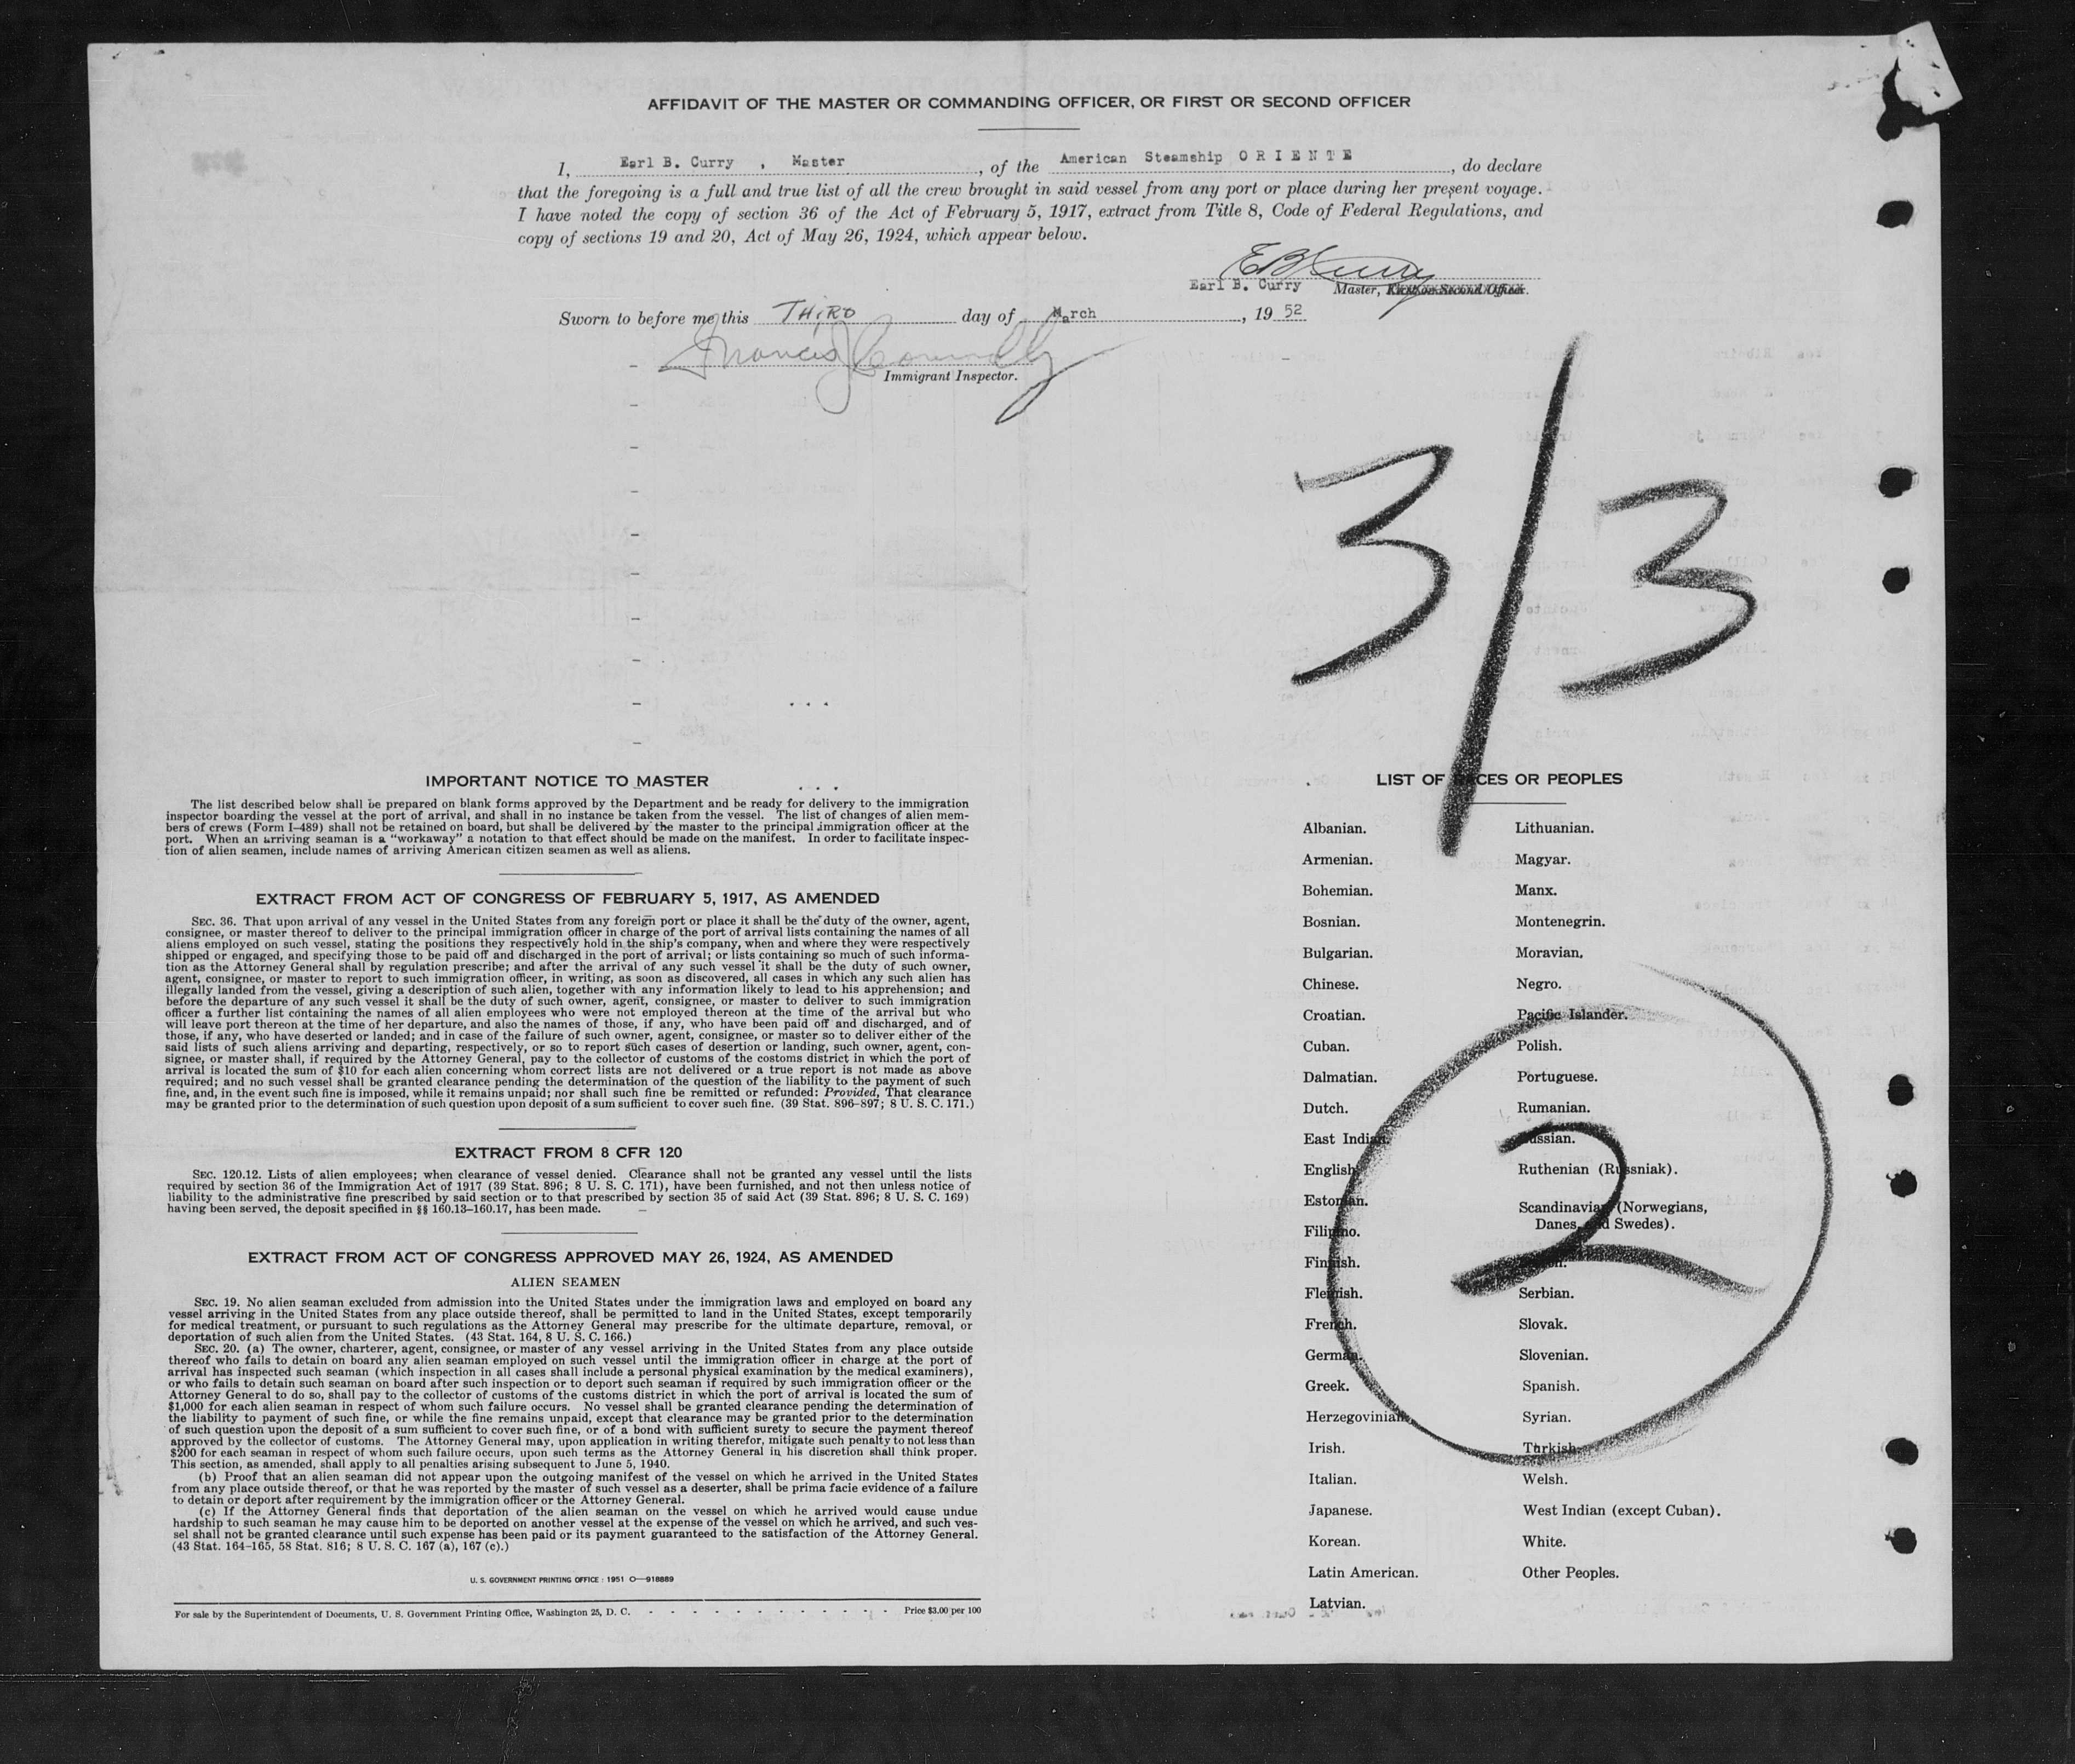 AFFIDAVIT OF THE MASTER OR COMMANDING OFFICER, OR FIRST OR SECOND OFFICER
I, Earl B. Curry , Master , of the American Steamship O R I E N T E , do declare
that the foregoing is a full and true list of all the crew brought in said vessel from any port or place during her present voyage.
I have noted the copy of section 36 of the Act of February 5, 1917, extract from Title 8, Code of Federal Regulations, and
copy of sections 19 and 20, Act of May 26, 1924, which appear below.
E B Curry
Earl B. Curry Master, First or Second Officer.
Sworn to before me this THIRD day of March , 19 52
Francis J Connolly
Immigrant Inspector.
3/3
IMPORTANT NOTICE TO MASTER
The list described below shall be prepared on blank forms approved by the Department and be ready for delivery to the immigration
inspector boarding the vessel at the port of arrival, and shall in no instance be taken from the vessel. The list of changes of alien mem-
bers of crews (Form I-489) shall not be retained on board, but shall be delivered by the master to the principal immigration officer at the
port. When an arriving seaman is a "workaway" a notation to that effect should be made on the manifest. In order to facilitate inspec-
tion of alien seamen, include names of arriving American citizen seamen as well as aliens.
EXTRACT FROM ACT OF CONGRESS OF FEBRUARY 5, 1917, AS AMENDED
SEC. 36. That upon arrival of any vessel in the United States from any foreign port or place it shall be the duty of the owner, agent,
consignee, or master thereof to deliver to the principal immigration officer in charge of the port of arrival lists containing the names of all
aliens employed on such vessel, stating the positions they respectively hold in the ship's company, when and where they were respectively
shipped or engaged, and specifying those to be paid off and discharged in the port of arrival; or lists containing so much of such informa-
tion as the Attorney General shall by regulation prescribe; and after the arrival of any such vessel it shall be the duty of such owner,
agent, consignee, or master to report to such immigration officer, in writing, as soon as discovered, all cases in which any such alien has
illegally landed from the vessel, giving a description of such alien, together with any information likely to lead to his apprehension; and
before the departure of any such vessel it shall be the duty of such owner, agent, consignee, or master to deliver to such immigration
officer a further list containing the names of all alien employees who were not employed thereon at the time of the arrival but who
will leave port thereon at the time of her departure, and also the names of those, if any, who have been paid off and discharged, and of
those, if any, who have deserted or landed; and in case of the failure of such owner, agent, consignee, or master so to deliver either of the
said lists of such aliens arriving and departing, respectively, or so to report such cases of desertion or landing, such owner, agent, con-
signee, or master shall, if required by the Attorney General, pay to the collector of customs of the costoms district in which the port of
arrival is located the sum of $10 for each alien concerning whom correct lists are not delivered or a true report is not made as above
required; and no such vessel shall be granted clearance pending the determination of the question of the liability to the payment of such
fine, and, in the event such fine is imposed, while it remains unpaid; nor shall such fine be remitted or refunded: Provided, That clearance
may be granted prior to the determination of such question upon deposit of a sum sufficient to cover such fine. (39 Stat. 896-897; 8 U. S. C. 171.)
EXTRACT FROM 8 CFR 120
SEC. 120.12. Lists of alien employees; when clearance of vessel denied. Clearance shall not be granted any vessel until the lists
required by section 36 of the Immigration Act of 1917 (39 Stat. 896; 8 U. S. C. 171), have been furnished, and not then unless notice of
liability to the administrative fine prescribed by said section or to that prescribed by section 35 of said Act (39 Stat. 896; 8 U. S. C. 169)
having been served, the deposit specified in §§ 160.13-160.17, has been made.
EXTRACT FROM ACT OF CONGRESS APPROVED MAY 26, 1924, AS AMENDED
ALIEN SEAMEN
SEC. 19. No alien seaman excluded from admission into the United States under the immigration laws and employed on board any
vessel arriving in the United States from any place outside thereof, shall be permitted to land in the United States, except temporarily
for medical treatment, or pursuant to such regulations as the Attorney General may prescribe for the ultimate departure, removal, or
deportation of such alien from the United States. (43 Stat. 164, 8 U. S. C. 166.)
SEC. 20. (a) The owner, charterer, agent, consignee, or master of any vessel arriving in the United States from any place outside
thereof who fails to detain on board any alien seaman employed on such vessel until the immigration officer in charge at the port of
arrival has inspected such seaman (which inspection in all cases shall include a personal physical examination by the medical examiners),
or who fails to detain such seaman on board after such inspection or to deport such seaman if required by such immigration officer or the
Attorney General to do so, shall pay to the collector of customs of the customs district in which the port of arrival is located the sum of
$1,000 for each alien seaman in respect of whom such failure occurs. No vessel shall be granted clearance pending the determination of
the liability to payment of such fine, or while the fine remains unpaid, except that clearance may be granted prior to the determination
of such question upon the deposit of a sum sufficient to cover such fine, or of a bond with sufficient surety to secure the payment thereof
approved by the collector of customs. The Attorney General may, upon application in writing therefor, mitigate such penalty to not less than
$200 for each seaman in respect of whom such failure occurs, upon such terms as the Attorney General in his discretion shall think proper.
This section, as amended, shall apply to all penalties arising subsequent to June 5, 1940.
(b) Proof that an alien seaman did not appear upon the outgoing manifest of the vessel on which he arrived in the United States
from any place outside thereof, or that he was reported by the master of such vessel as a deserter, shall be prima facie evidence of a failure
to detain or deport after requirement by the immigration officer or the Attorney General.
(c) If the Attorney General finds that deportation of the alien seaman on the vessel on which he arrived would cause undue
hardship to such seaman he may cause him to be deported on another vessel at the expense of the vessel on which he arrived, and such ves-
sel shall not be granted clearance until such expense has been paid or its payment guaranteed to the satisfaction of the Attorney General.
(43 Stat. 164-165, 58 Stat. 816; 8 U. S. C. 167 (a), 167 (c).)
U. S. GOVERNMENT PRINTING OFFICE : 1951 O—918889
For sale by the Superintendent of Documents, U. S. Government Printing Office, Washington 25, D. C. - - - - - - - - - - - Price $3.00 per 100
LIST OF RACES OR PEOPLES
Albanian.
Armenian.
Bohemian.
Bosnian.
Bulgarian.
Chinese.
Croatian.
Cuban.
Dalmatian.
Dutch.
East Indian.
English.
Estonian.
Filipino.
Finnish.
Flemish.
French.
German.
Greek.
Herzegovinian.
Irish.
Italian.
Japanese.
Korean.
Latin American.
Latvian.
Lithuanian.
Magyar.
Manx.
Montenegrin.
Moravian.
Negro.
Pacific Islander.
Polish.
Portuguese.
Rumanian.
Russian.
Ruthenian (Russniak).
Scandinavian (Norwegians,
Danes, and Swedes).
Serbian.
Slovak.
Slovenian.
Spanish.
Syrian.
Turkish.
Welsh.
West Indian (except Cuban).
White.
Other Peoples.
2